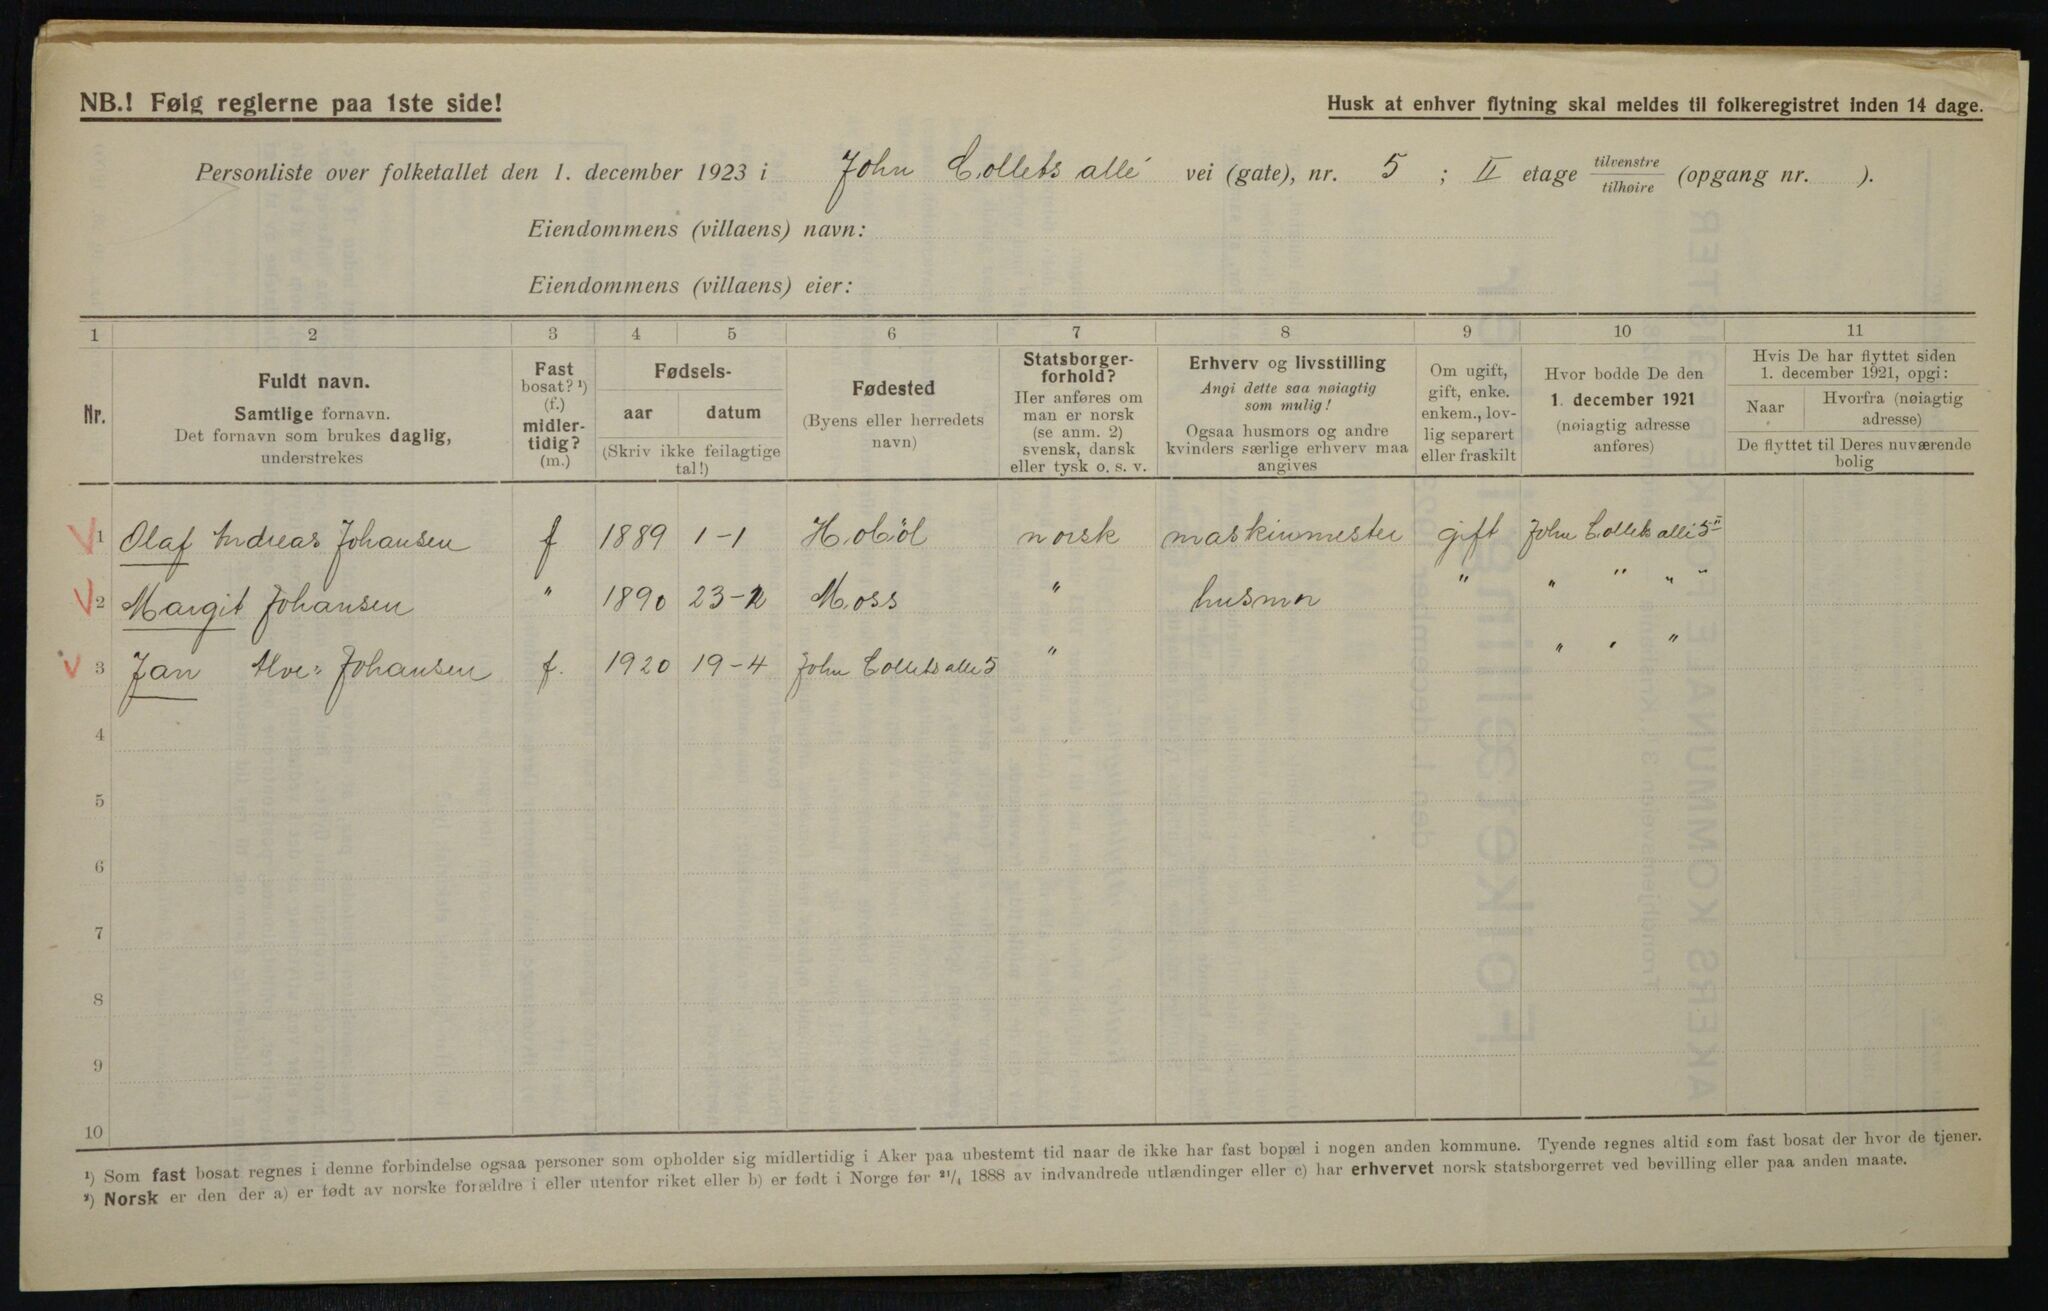 NB.! Følg reglerne paa 1ste side!
Husk at enhver flytning skal meldes til folkeregistret inden 14 dage.
Personliste over folketallet den 1. december 1923 i John Collets allé vei (gate), nr. 5 ; II etage tilvenstre/tilhøire (opgang nr. ).
Eiendommens (villaens) navn:
Eiendommens (villaens) eier:
1 2 3 4 5 6 7 8 9 10 11
Nr.
Fuldt navn.
Samtlige fornavn.
Det fornavn som brukes daglig,
understrekes
Fast
bosat? ¹)
(f.)
midler-
tidig?
(m.)
Fødsels-
aar datum
(Skriv ikke feilagtige
tal!)
Fødested
(Byens eller herredets
navn)
Statsborger-
forhold?
Her anføres om
man er norsk
(se anm. 2)
svensk, dansk
eller tysk o. s. v.
Erhverv og livsstilling
Angi dette saa nøiagtig
som mulig!
Ogsaa husmors og andre
kvinders særlige erhverv maa
angives
Om ugift,
gift, enke.
enkem., lov-
lig separert
eller fraskilt
Hvor bodde De den
1. december 1921
(nøiagtig adresse
anføres)
Hvis De har flyttet siden
1. december 1921, opgi:
Naar
Hvorfra (nøiagtig
adresse)
De flyttet til Deres nuværende
bolig
1 Olaf Andreas Johansen f 1889 1-1 Hoböl norsk maskinmester gift John Collets alle 5 II
2 Margit Johansen " 1890 23-2 Moss " husmor " " " " "
3 Jan Johansen f. 1920 19-4 John Collets alle 5 " " " "
4
5
6
7
8
9
10
¹) Som fast bosat regnes i denne forbindelse ogsaa personer som opholder sig midlertidig i Aker paa ubestemt tid naar de ikke har fast bopæl i nogen anden kommune. Tyende regnes altid som fast bosat der hvor de tjener.
²) Norsk er den der a) er født av norske forældre i eller utenfor riket eller b) er født i Norge før ²¹/₄ 1888 av indvandrede utlændinger eller c) har erhvervet norsk statsborgerret ved bevilling eller paa anden maate.